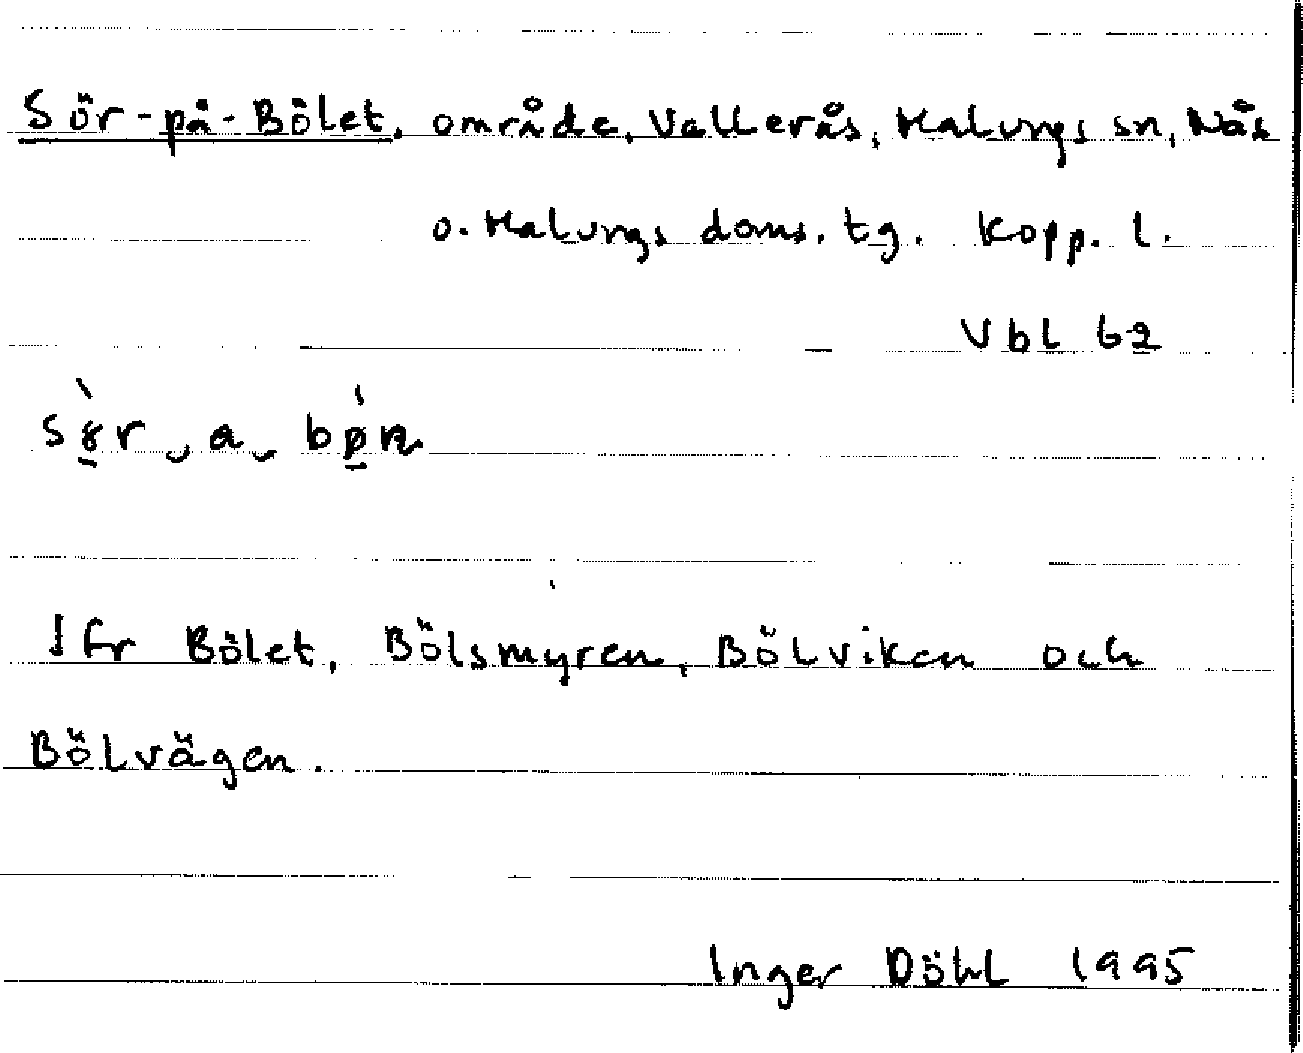 Sör-på-Bölet, område, Vallerås, Malungs sn, Nås
o. Malungs doms. tg. Kopp. l.
Vbl 62
Jfr Bölet, Bölsmyren, Bölviken och
Bölvägen.
Inger Döhl 1995